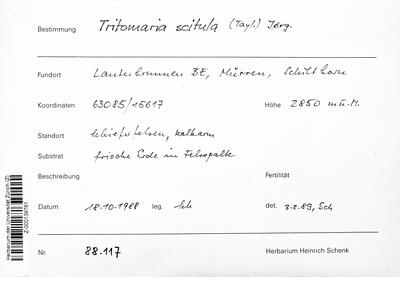 Bestimmung Tritomaria scitula (Tayl.) Jørg.
Fundort Lauterbrunnen BE, Mürren, Schilthorn
Koordinaten 63085/15617 Höhe 2850 m ü. M.
Standort Schieferfelsen, kalkarm
Substrat frische Erde in Felsspalte
Beschreibung Fertilität
Datum 18.10.1988 leg. Sch det. 2.2.89, Sch
Nr. 88.117 Herbarium Heinrich Schenk
Herbarium der Universität Zürich (Z)